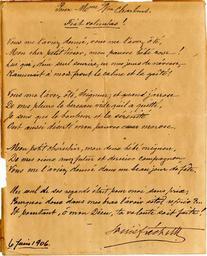 Pour Mme Wm Chartrand.
Fiat voluntas!
Vous me l'aviez donné, vous me l'avez ôté,
Mon cher petit trésor, mon pauvre bébé rose!
Lui qui, d'un seul sourire, en mes jours de névrose,
Ramenait à mon front le calme et la gaîté!
Vous me l'avez ôté, Seigneur, et quand j'arrose
De mes pleurs le berceau vide qu'il a quitté,
Je sens que le bonheur et la sérénité
Ont aussi déserté mon pauvre cœur morose.
Mon petit chérubin, mon doux bébé mignon,
De mes vieux ans futur et dernier compagnon,
Vous me l'aviez donné dans un beau jour de fête.
Un seul de ses regards était pour moi sans prix;
Pourquoi donc dans mes bras l'avoir sitôt repris?
Et pourtant, ô mon Dieu, ta volonté soit faite!
Louis Fréchette
6 Juin 1906.